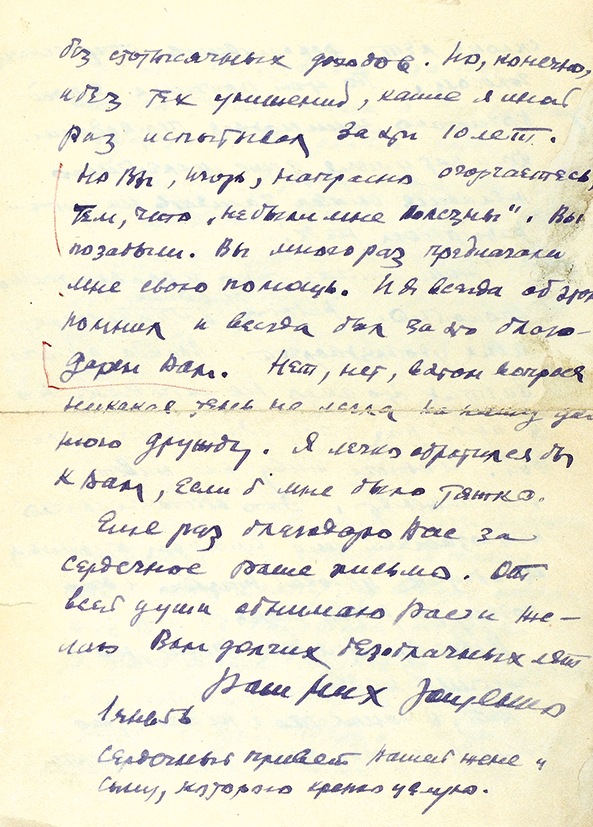 без стотысячных доходов. Но, конечно,
и без тех унижений, какие я иной
раз испытывал за эти 10 лет.
Но Вы, Игорь, напрасно огорчаетесь,
тем, что „не были мне полезны". Вы
позабыли. Вы много раз предлагали
мне свою помощь. И я всегда об этом
помнил и всегда был за это благо-
дарен Вам. Нет, нет, в этом вопросе
никакая тень не легла на нашу дав
нюю дружбу. Я легко обратился бы
к Вам, если б мне было тяжко.
Еще раз благодарю Вас за
сердечное Ваше письмо. От
всей души обнимаю Вас и же-
лаю Вам долгих безоблачных лет
Ваш Мих Зощенко
1
Сердечный привет Вашей жене и
сыну, которого крепко целую.